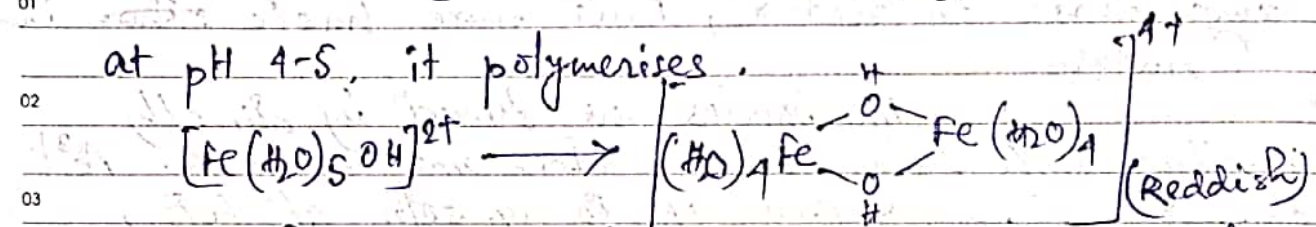 01
at pH 4-5, it polymerises.
02
[Fe(H2O)5 OH]2+ ⟶ [(H2O)4 Fe <(OH)(OH)> Fe (H2O)4]4+ (Reddish)
03